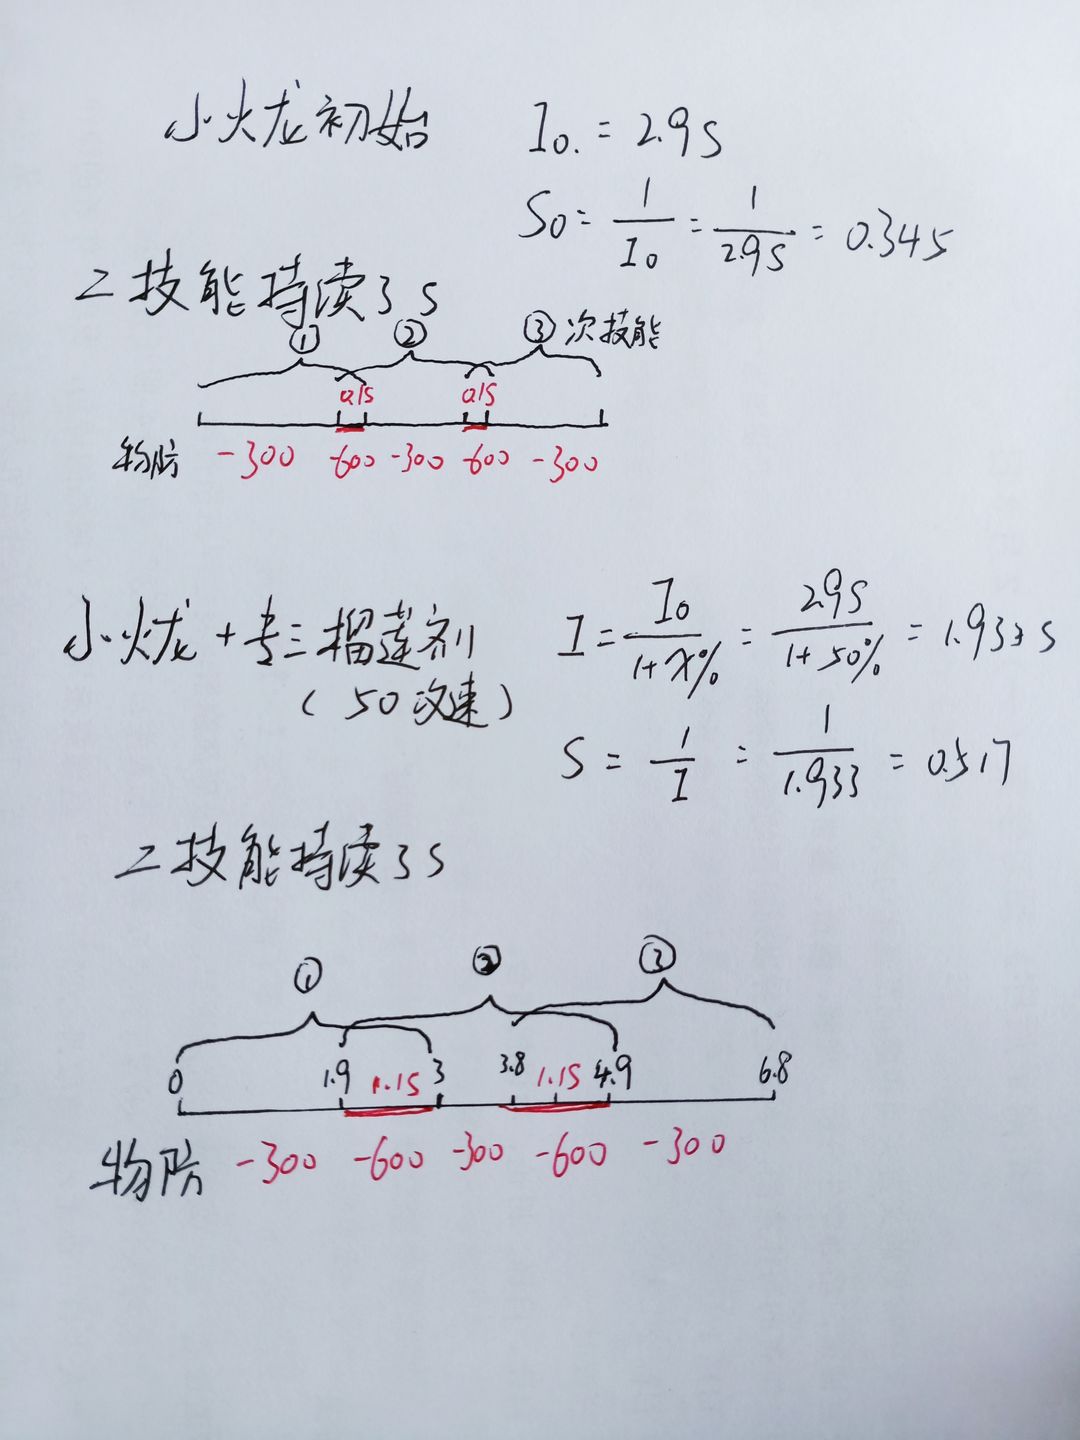 小火龙初始 I₀. = 2.9s
S₀ = 1/I₀ = 1/2.9s = 0.345
二技能持续3s
① ② ③次技能
0.1s 0.1s
物防 -300 -600 -300 -600 -300
小火龙+专三榴莲剂 I = I₀/(1+x%) = 2.9s/(1+50%) = 1.933s
(50攻速)
S = 1/I = 1/1.933 = 0.517
二技能持续3s
① ② ③
0 1.9 1.1s 3 3.8 1.1s 4.9 6.8
物防 -300 -600 -300 -600 -300